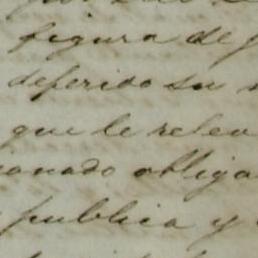 figura de
deferido su
que le relev
onado obliga
publica y